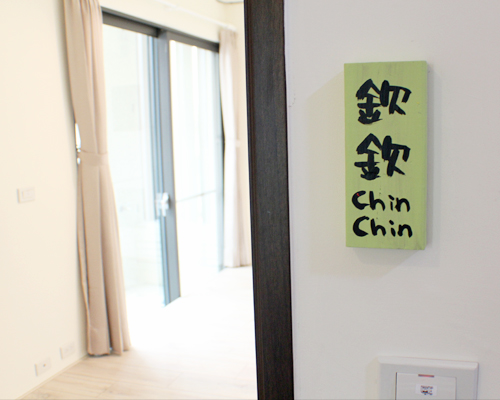 欽
欽
Chin
Chin